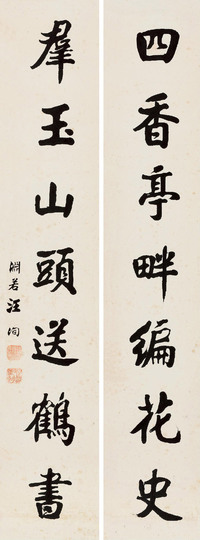 四香亭畔編花史
羣玉山頭送鶴書
淵若汪洵